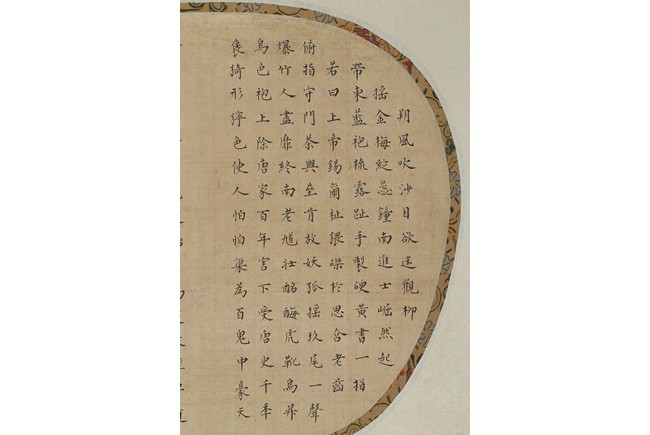 朔風吹沙目欲迷觀柳
搖金梅綻蕊鐘南進士崛然起
帶束藍袍梳露趾手製硬黃書一指
若曰上帝錫爾祉猥磔於思含老齒
俯指守門荼與壘肯放妖狐搖玖尾一聲
爆竹人盡靡終南老馗壯酩酶虎靴烏
烏色袍上除唐家百年害下受唐史千年
褒綺形色使人怕怕梁為百鬼中豪天